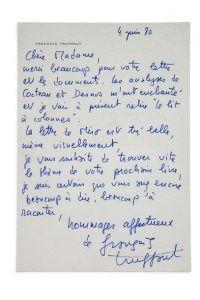 FRANÇOIS TRUFFAUT
4 juin 80
Chère Madame,
merci beaucoup pour votre lettre
et le document. Les analyses de
Cocteau et Desnos m'ont enchanté
et je vais à présent relire "le lit
à colonnes".
la lettre de est très belle,
même visuellement
je vous souhaite de trouver vite
le thème de votre prochain livre,
je suis certain que vous avez encore
beaucoup à dire, beaucoup à
raconter,
hommages affectueux
de françois
truffaut